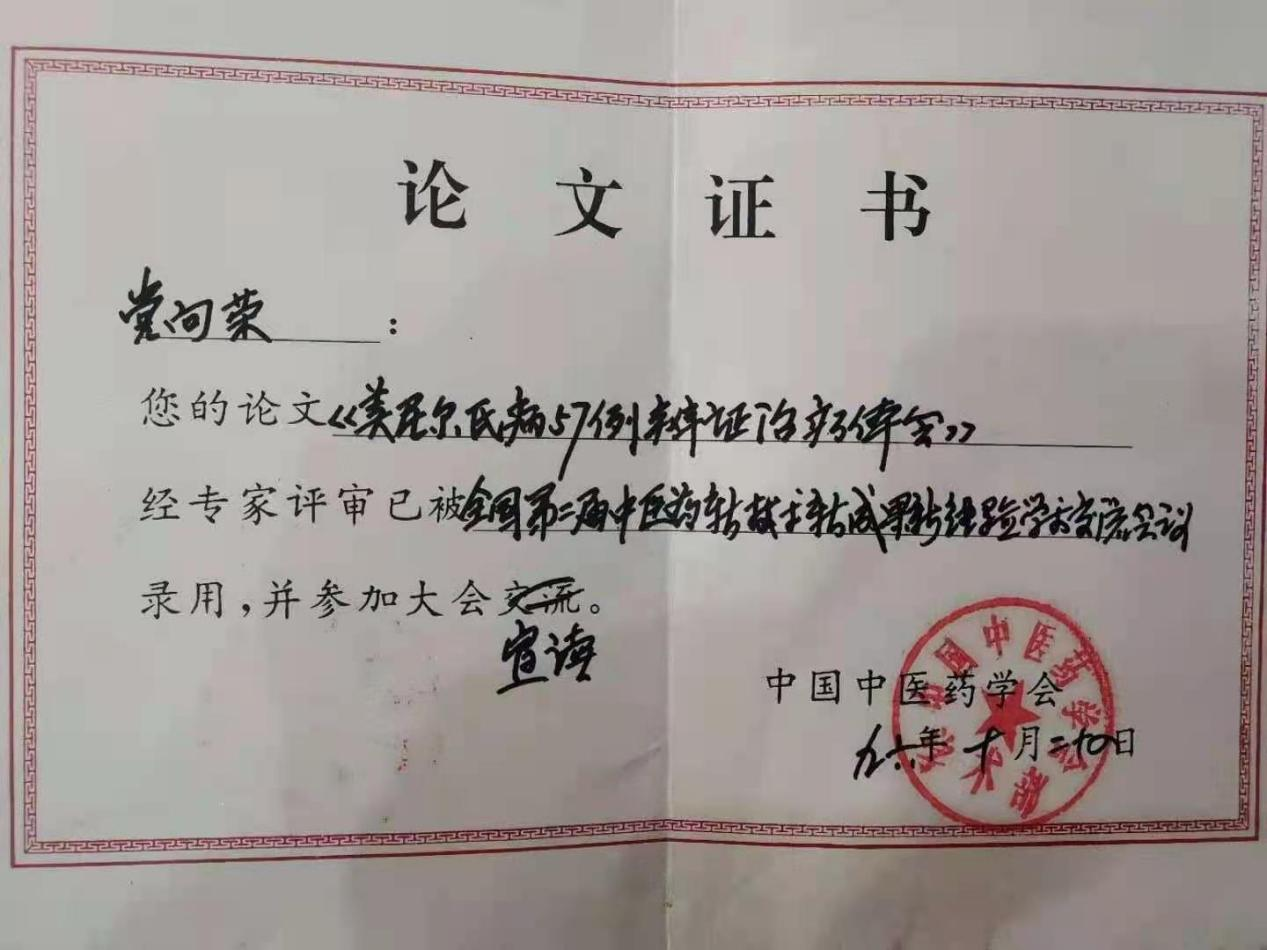 论文证书
党向荣：
您的论文《美尼尔氏病57例辨证治疗体会》
经专家评审已被全国第二届中医药新技术新成果新经验学术交流会议
录用，并参加大会交流。
宣读
中国中医药学会
九六年十月二十日
中国中医药学会